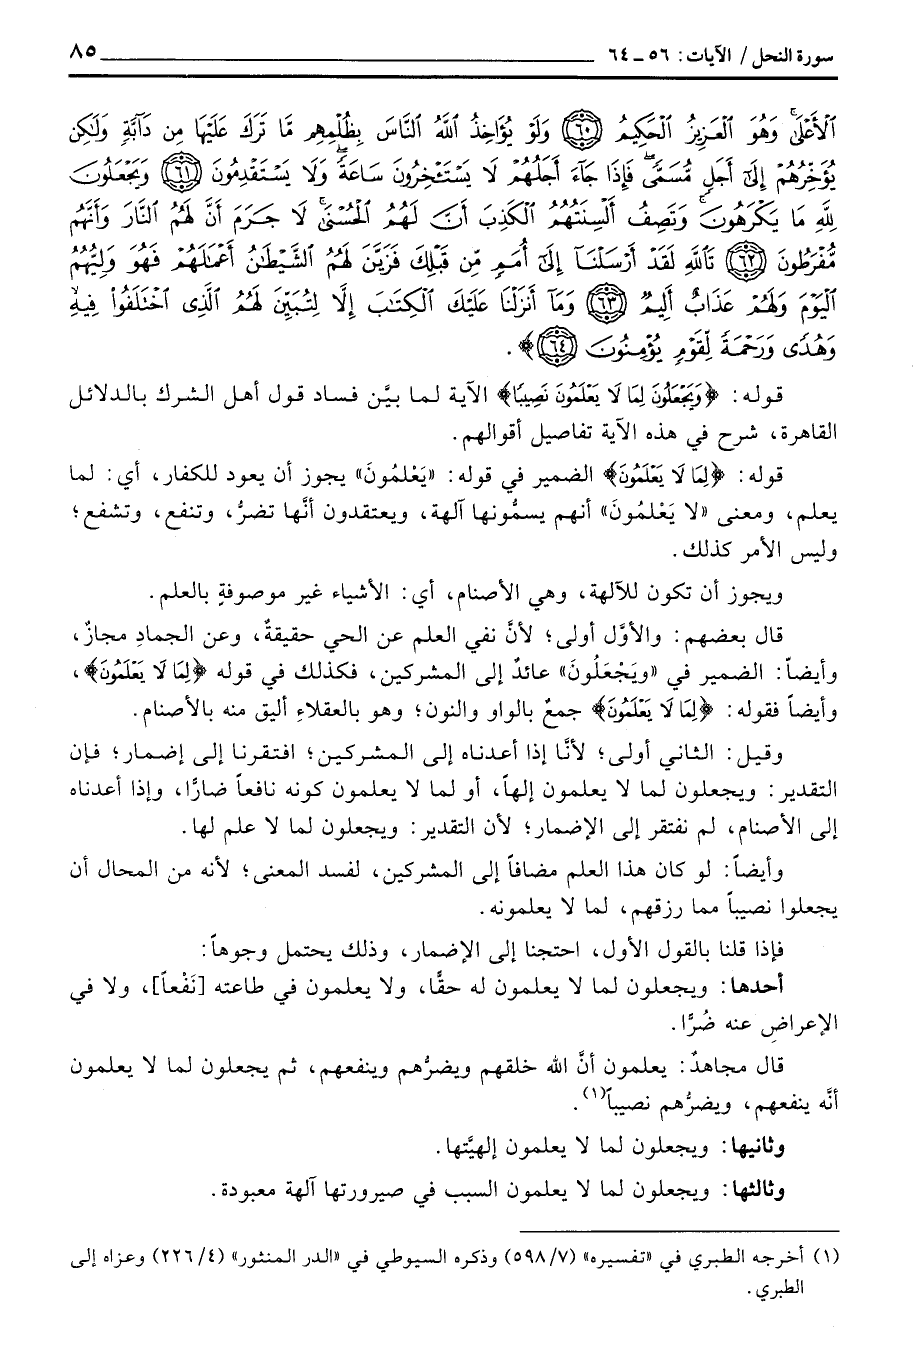 سورة النحل / الآيات: ٥٦ ـ ٦٤ ٨٥
ٱلْأَعْلَىٰۚ وَهُوَ ٱلْعَزِيزُ ٱلْحَكِيمُ ﴿٦٠﴾ وَلَوْ يُؤَاخِذُ ٱللَّهُ ٱلنَّاسَ بِظُلْمِهِم مَّا تَرَكَ عَلَيْهَا مِن دَآبَّةٍ وَلَٰكِن
يُؤَخِّرُهُمْ إِلَىٰٓ أَجَلٍ مُّسَمًّىۖ فَإِذَا جَآءَ أَجَلُهُمْ لَا يَسْتَـْٔخِرُونَ سَاعَةًۖ وَلَا يَسْتَقْدِمُونَ ﴿٦١﴾ وَيَجْعَلُونَ
لِلَّهِ مَا يَكْرَهُونَۚ وَتَصِفُ أَلْسِنَتُهُمُ ٱلْكَذِبَ أَنَّ لَهُمُ ٱلْحُسْنَىٰۚ لَا جَرَمَ أَنَّ لَهُمُ ٱلنَّارَ وَأَنَّهُم
مُّفْرَطُونَ ﴿٦٢﴾ تَٱللَّهِ لَقَدْ أَرْسَلْنَآ إِلَىٰٓ أُمَمٍ مِّن قَبْلِكَ فَزَيَّنَ لَهُمُ ٱلشَّيْطَٰنُ أَعْمَٰلَهُمْ فَهُوَ وَلِيُّهُمُ
ٱلْيَوْمَ وَلَهُمْ عَذَابٌ أَلِيمٌ ﴿٦٣﴾ وَمَآ أَنزَلْنَا عَلَيْكَ ٱلْكِتَٰبَ إِلَّا لِتُبَيِّنَ لَهُمُ ٱلَّذِى ٱخْتَلَفُوا۟ فِيهِۙ
وَهُدًى وَرَحْمَةً لِّقَوْمٍ يُؤْمِنُونَ ﴿٦٤﴾﴾.
قوله: ﴿وَيَجْعَلُونَ لِمَا لَا يَعْلَمُونَ نَصِيبًا﴾ الآية لما بيَّن فساد قول أهل الشرك بالدلائل
القاهرة، شرح في هذه الآية تفاصيل أقوالهم.
قوله: ﴿لِمَا لَا يَعْلَمُونَ﴾ الضمير في قوله: «يَعْلمُونَ» يجوز أن يعود للكفار، أي: لما
يعلم، ومعنى «لا يَعْلمُونَ» أنهم يسمُّونها آلهة، ويعتقدون أنَّها تضرُّ، وتنفع، وتشفع؛
وليس الأمر كذلك.
ويجوز أن تكون للآلهة، وهي الأصنام، أي: الأشياء غير موصوفةٍ بالعلم.
قال بعضهم: والأوَّل أولى؛ لأنَّ نفي العلم عن الحي حقيقةٌ، وعن الجمادِ مجازٌ،
وأيضاً: الضمير في «ويَجْعَلُونَ» عائدٌ إلى المشركين، فكذلك في قوله ﴿لِمَا لَا يَعْلَمُونَ﴾،
وأيضاً فقوله: ﴿لِمَا لَا يَعْلَمُونَ﴾ جمعٌ بالواو والنون؛ وهو بالعقلاءِ أليق منه بالأصنام.
وقيل: الثاني أولى؛ لأنَّا إذا أعدناه إلى المشركين؛ افتقرنا إلى إضمار؛ فإن
التقدير: ويجعلون لما لا يعلمون إلهاً، أو لما لا يعلمون كونه نافعاً ضارًّا، وإذا أعدناه
إلى الأصنام، لم نفتقر إلى الإضمار؛ لأن التقدير: ويجعلون لما لا علم لها.
وأيضاً: لو كان هذا العلم مضافاً إلى المشركين، لفسد المعنى؛ لأنه من المحال أن
يجعلوا نصيباً مما رزقهم، لما لا يعلمونه.
فإذا قلنا بالقول الأول، احتجنا إلى الإضمار، وذلك يحتمل وجوهاً:
أحدها: ويجعلون لما لا يعلمون له حقًّا، ولا يعلمون في طاعته [نَفْعاً]، ولا في
الإعراضِ عنه ضُرًّا.
قال مجاهدٌ: يعلمون أنَّ الله خلقهم ويضرُّهم وينفعهم، ثم يجعلون لما لا يعلمون
أنَّه ينفعهم، ويضرُّهم نصيباً(١).
وثانيها: ويجعلون لما لا يعلمون إلهيَّتها.
وثالثها: ويجعلون لما لا يعلمون السبب في صيرورتها آلهة معبودة.
(١) أخرجه الطبري في «تفسيره» (٥٩٨/٧) وذكره السيوطي في «الدر المنثور» (٢٢٦/٤) وعزاه إلى
الطبري.